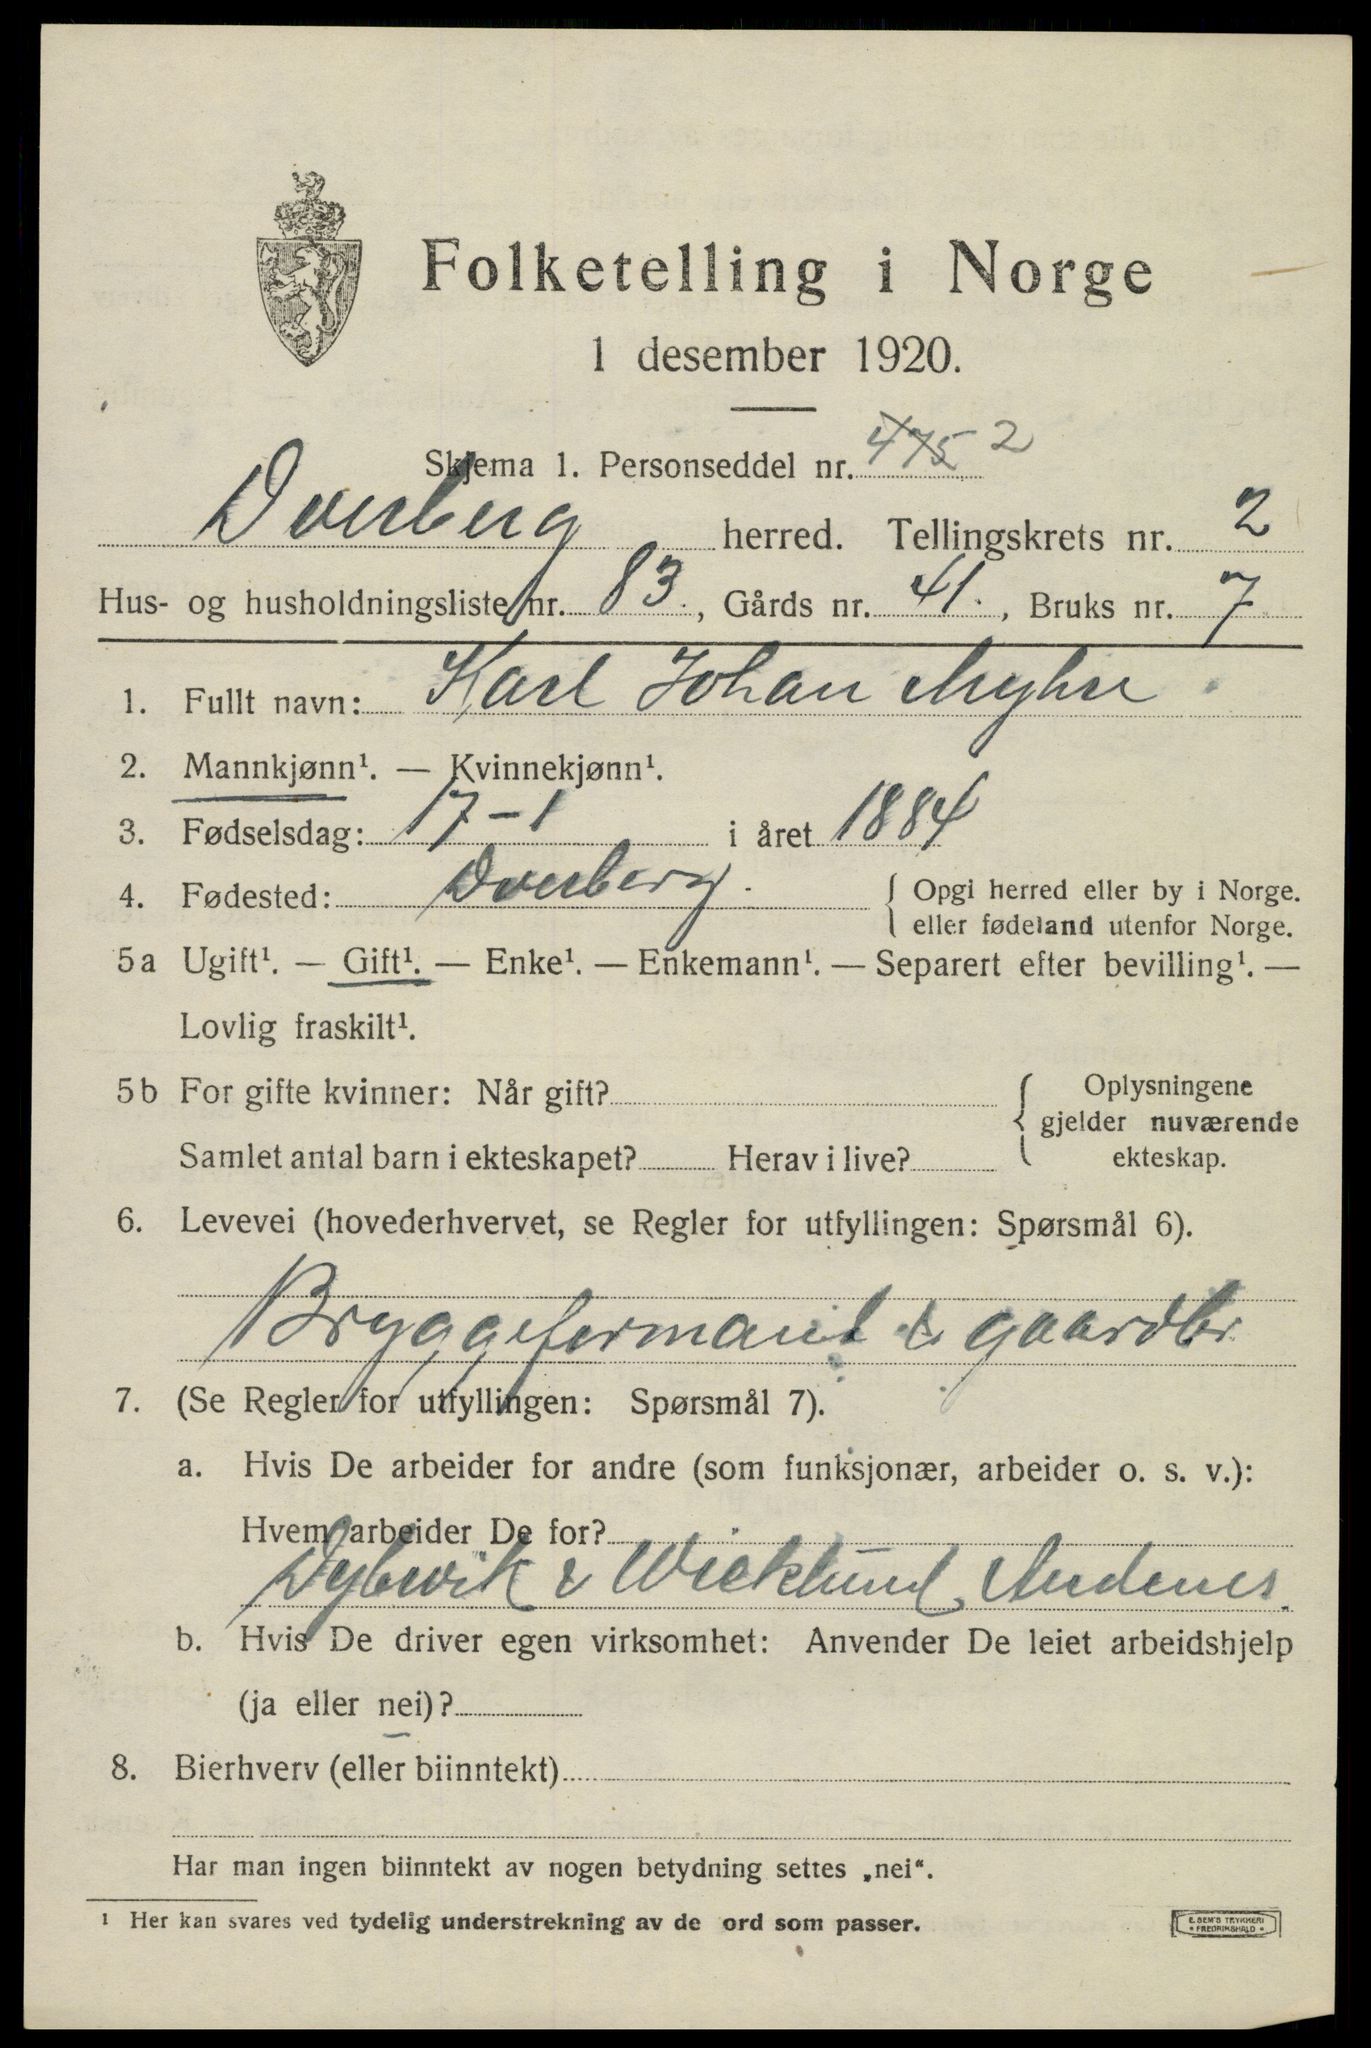 Folketelling i Norge
1 desember 1920.
Skjema 1. Personseddel nr. 475 2
Dverberg herred. Tellingskrets nr. 2
Hus- og husholdningsliste nr. 83., Gårds nr. 41., Bruks nr. 7
1. Fullt navn: Karl Johan Myhre
2. Mannkjønn¹. — Kvinnekjønn¹.
3. Fødselsdag: 17-1 i året 1884
4. Fødested: Dverberg. { Opgi herred eller by i Norge.
eller fødeland utenfor Norge.
5a Ugift¹. — Gift¹. — Enke¹. — Enkemann¹. — Separert efter bevilling¹. —
Lovlig fraskilt¹.
5b For gifte kvinner: Når gift? { Oplysningene
gjelder nuværende
Samlet antal barn i ekteskapet? Herav i live? ekteskap.
6. Levevei (hovederhvervet, se Regler for utfyllingen: Spørsmål 6).
Bryggeformand & gaardbr.
7. (Se Regler for utfyllingen: Spørsmål 7).
a. Hvis De arbeider for andre (som funksjonær, arbeider o. s. v.):
Hvem arbeider De for?
Dybwik & Wicklund, Andenes.
b. Hvis De driver egen virksomhet: Anvender De leiet arbeidshjelp
(ja eller nei)?
8. Bierhverv (eller biinntekt)
Har man ingen biinntekt av nogen betydning settes „nei“.
¹ Her kan svares ved tydelig understrekning av de ord som passer.
E. SEM'S TRYKKERI
* FREDRIKSHALD *